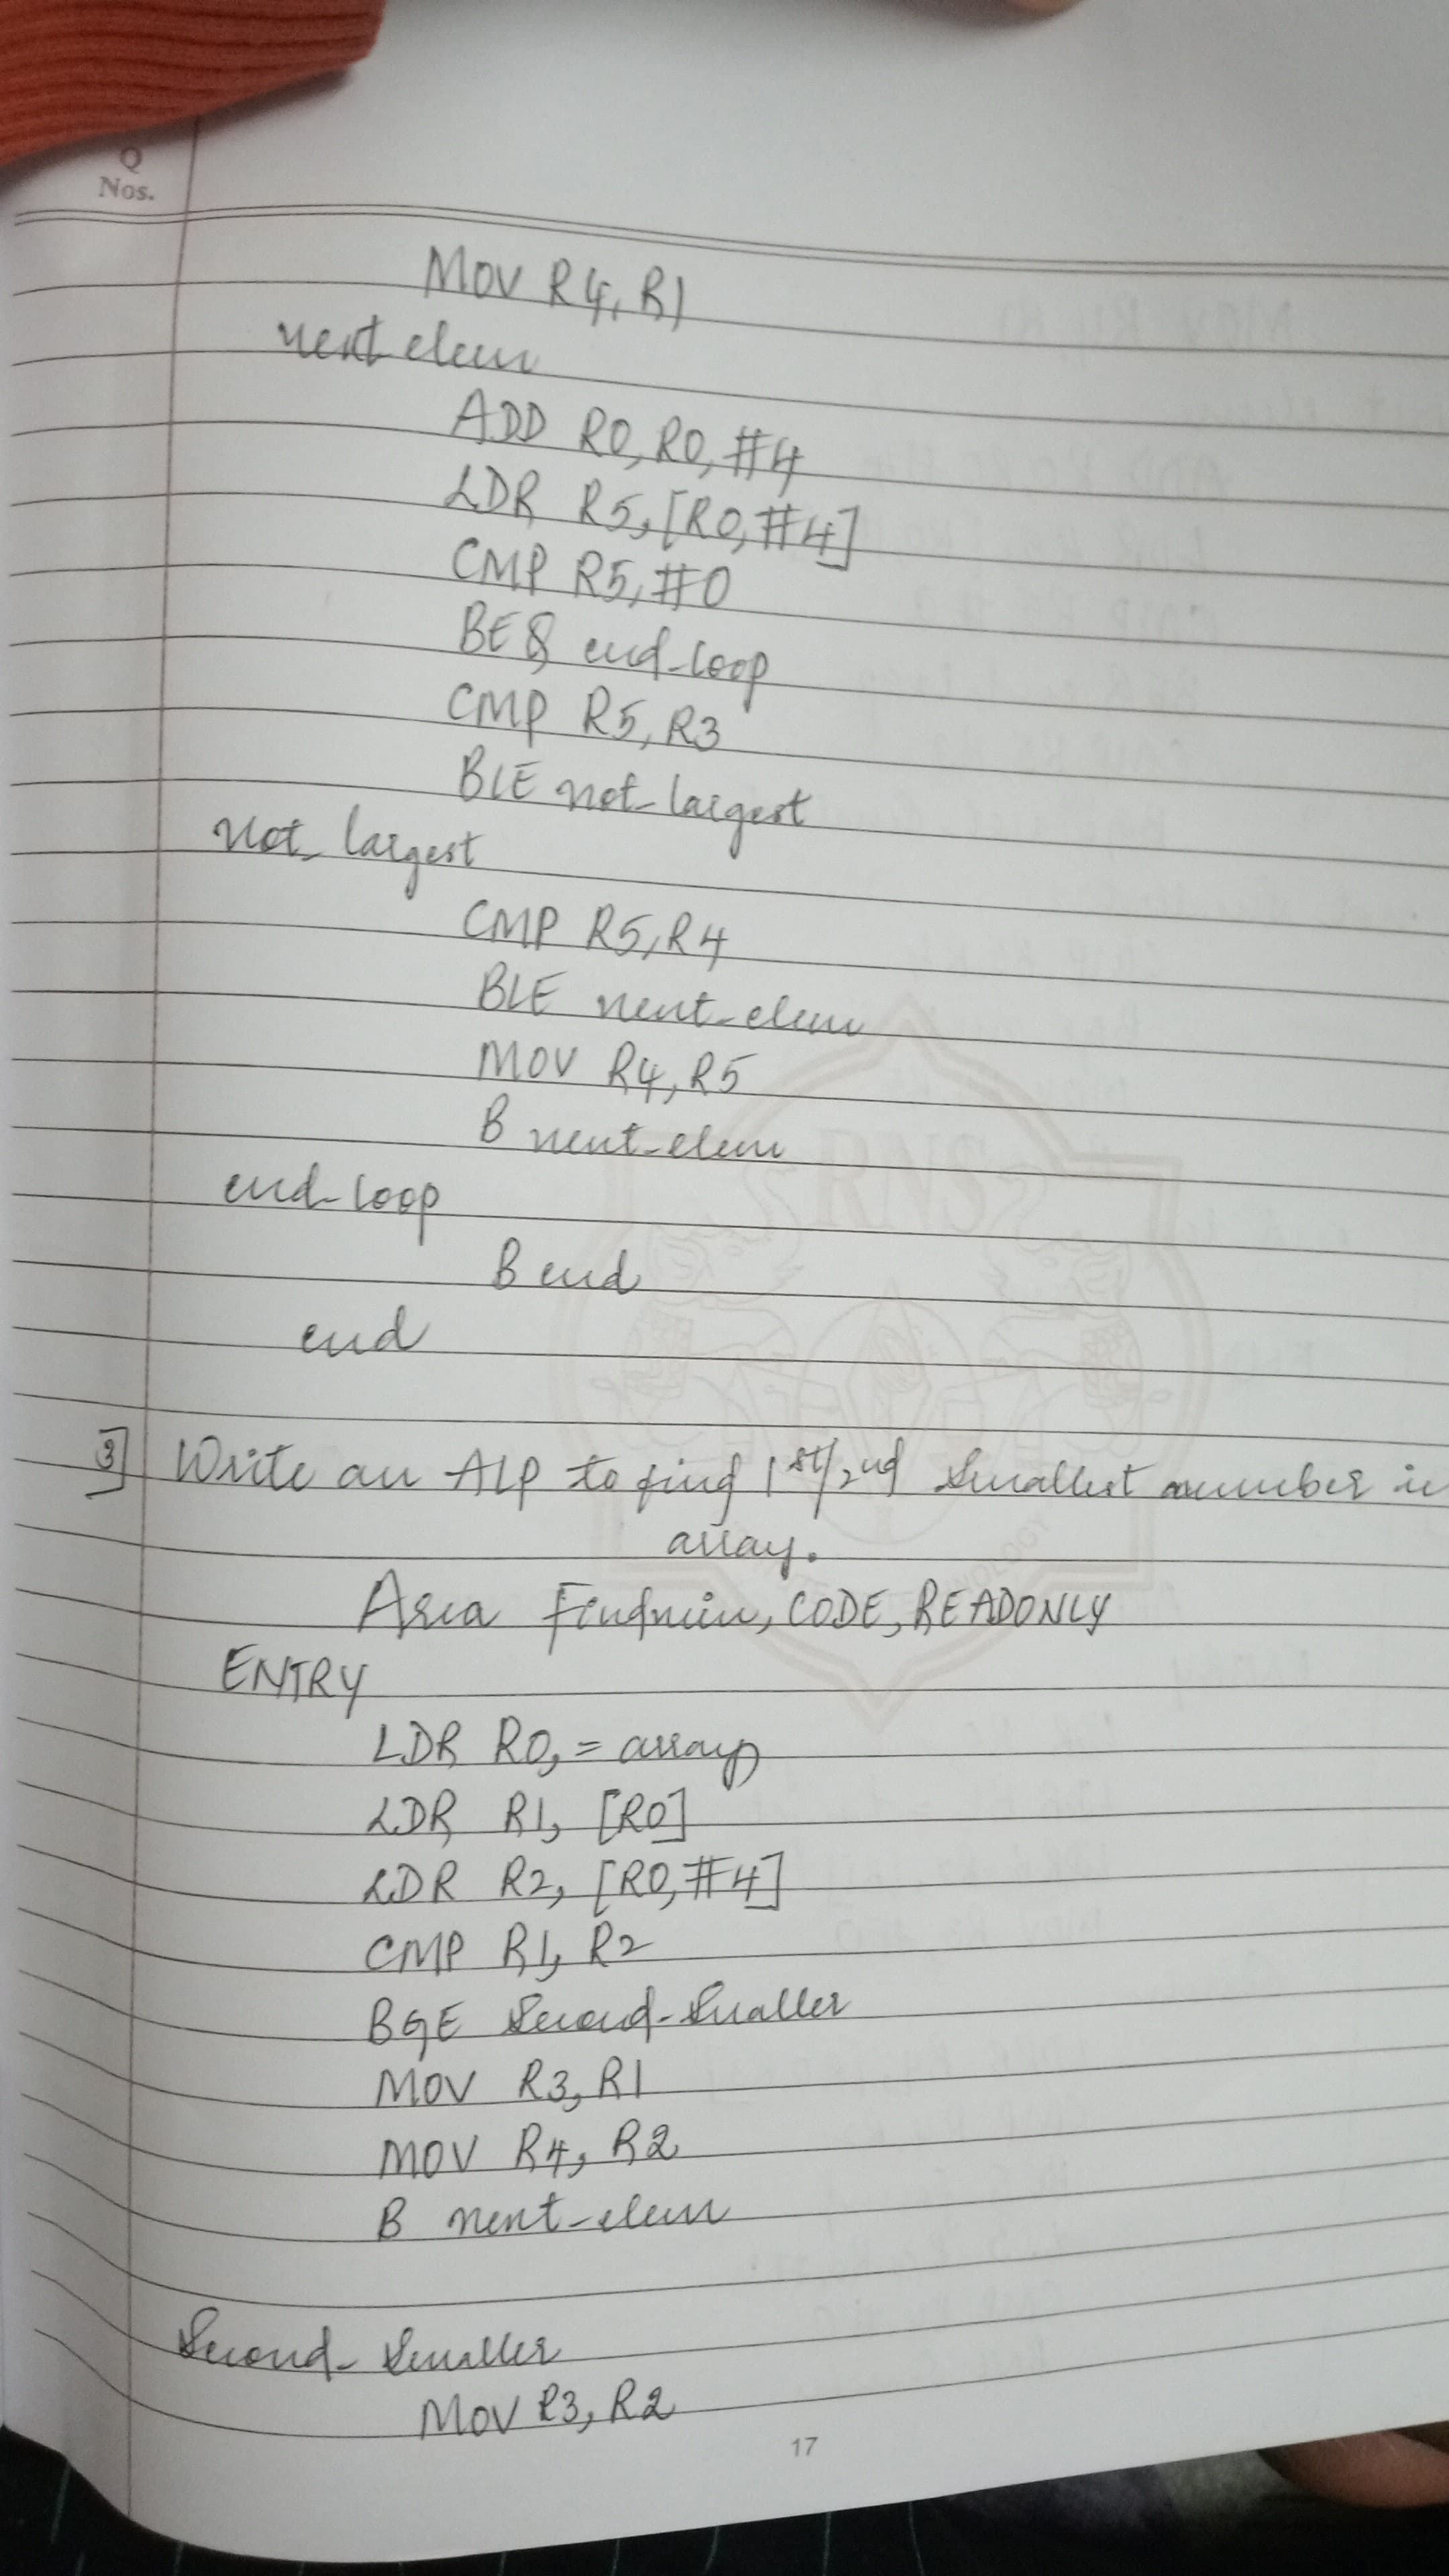 Q
Nos.
MOV R4, R1
next elem
ADD R0, R0, #4
LDR R5, [R0, #4]
CMP R5, #0
BEQ end_loop
CMP R5, R3
BLE not_largest
not_largest
CMP R5, R4
BLE next_elem
MOV R4, R5
B next_elem
end_loop
B end
end
3] Write an ALP to find 1st/2nd smallest number in
array.
Area Findmin, CODE, READONLY
ENTRY
LDR R0, = array
LDR R1, [R0]
LDR R2, [R0, #4]
CMP R1, R2
BGE Second_Smaller
MOV R3, R1
MOV R4, R2
B next_elem
Second_Smaller
MOV R3, R2
17
RNS